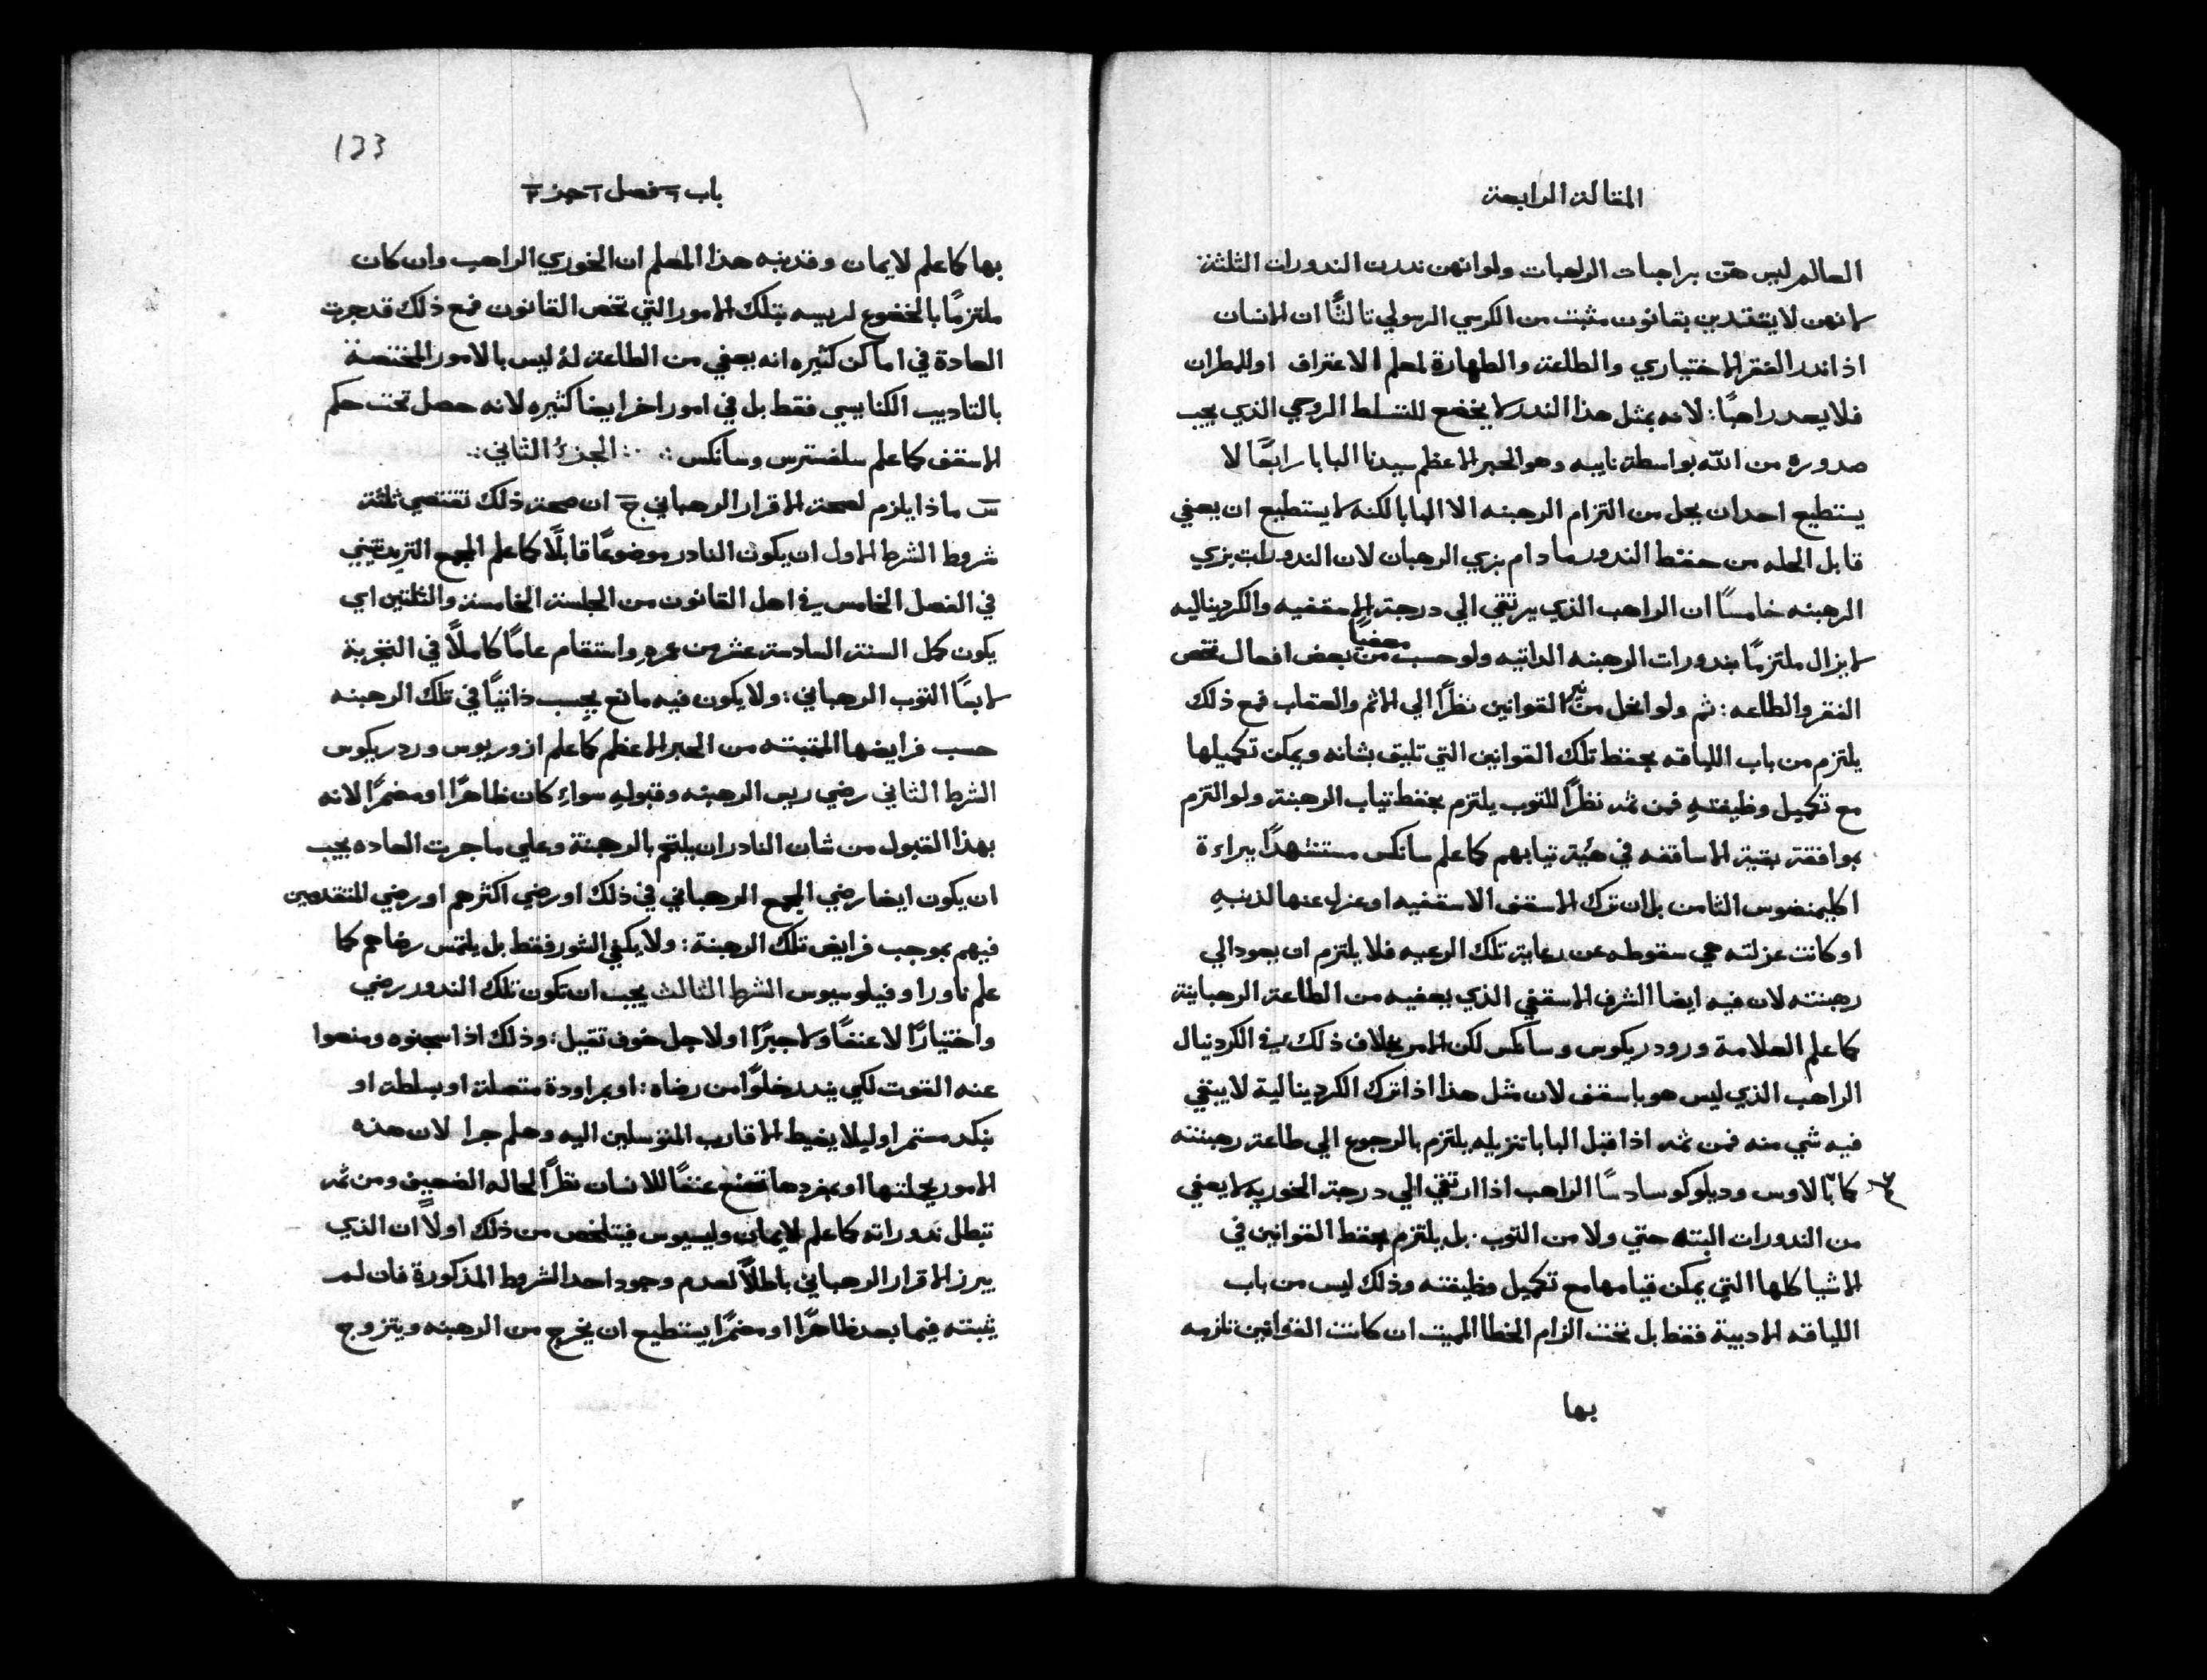 المقالة الرابعة
العالم ليس هنّ براجبات الراهبات ولو انهن نذرن الندورات الثلثة
لانهن لا يتقيدن بقانون مثبت من الكرسي الرسولي ثالثًا ان الانسان
اذا ندر الفقر الاختياري والطاعة والطهارة لمعلم الاعتراف او للمطران
فلا يعد راهبًا: لانه بمثل هذا الندر لا يخضع للتسلط الروحي الذي يجب
صدوره من الله بواسطة نايبه وهو الحبر الاعظم سيدنا البابا رابعًا لا
يستطيع احد ان يحل من التزام الرهبنه الا البابا لكنه لا يستطيع ان يعفي
قابل الحله من حفظ الندور ما دام بزي الرهبان لان الندورات بزي
الرهبنه خامسًا ان الراهب الذي يرتقي الي درجة الاسقفيه والكرديناليه
لا يزال ملتزمًا بندورات الرهبنه الداتيه ولو حسب معفيًا من بعض افعال تخص
الفقر والطاعه: ثم ولو انحل من نير القوانين نظرًا الي الاثم والعقاب فمع ذلك
يلتزم من باب اللياقه بحفظ تلك القوانين التي تليق بشانه ويمكن تكميلها
مع تكميل وظيفته فمن ثمه نظرًا للتوب يلتزم بحفظ تياب الرهبنة ولو التزم
بموافقة بقية الاساقفه في هيئة تيابهم كما علم سانكس مستشهدًا ببراءة
اكليمنضوس الثامن بل ان ترك الاسقف الاسقفيه او عزل عنها لذنبهِ
او كانت عزلته هي سقوطه عن رعاية تلك الرعيه فلا يلتزم ان يعود الي
رهبنته لان فيه ايضا الشرف الاسقفي الذي يعفيه من الطاعة الرهبانية
كما علم العلامة ورودريكوس وسانكس لكن الامر بخلاف ذلك في الكردنيال
الراهب الذي ليس هو باسقف لان مثل هذا اذا ترك الكردينالية لا يبقي
فيه شي منه فمن ثمه اذا قبل البابا تنزيله يلتزم بالرجوع الي طاعة رهبنته
كما بالاوس وديلوكو سادسًا الراهب اذا ارتقي الي درجة الخوريه لا يعفي
من الندورات البته حتي ولا من التوب. بل يلتزم بحفظ القوانين في
الاشيا كلها التي يمكن قيامها مع تكميل وظيفته وذلك ليس من باب
اللياقه الادبية فقط بل تحت الزام الخطا المميت ان كانت القوانين تلزمه
بها
133
باب ٩ فصل ١ جز ٢
بها كما علم لايمان وقد نبه هذا المعلم ان الخوري الراهب وان كان
ملتزمًا بالخضوع لرييسه بتلك الامور التي تخص القانون فمع ذلك قد جرت
العادة في اماكن كثيره انه يعفي من الطاعة له ليس بالامور المختصة
بالتاديب الكنايسي فقط بل في امور اخر ايضا كثيره لانه حصل تحت حكم
الاسقف كما علم سلفسترس وسانكس ∴ الجزء الثاني ∴
س ماذا يلزم لصحة الاقرار الرهباني ج ان صحة ذلك تقتضي ثلثة
شروط الشرط الاول ان يكون النادر موضوعًا قابلًا كما علم المجمع التريدنتيني
في الفصل الخامس في اهل القانون من الجلسة الخامسة والثلثين اي
يكون كمل السنة السادسة عشر من عمرهِ واستقام عامًا كاملًا في التجربة
لابسًا التوب الرهباني: ولا يكون فيه مانع يحسب ذاتيًا في تلك الرهبنه
حسب فرايضها المتبته من الحبر الاعظم كما علم ازوريوس وردريكوس
الشرط الثاني رضي ريس الرهبنه وقبوله سواء كان ظاهرًا او مضمرًا لانه
بهذا القبول من شان النادر ان يلتحم بالرهبنة وعلي ما جرت العاده يجب
ان يكون ايضا رضي المجمع الرهباني في ذلك او رضي اكثرهم او رضي المتقدمين
فيهم بموجب فرايض تلك الرهبنة: ولا يكفي الشور فقط بل يلتمس رضاهم كما
علم ناورا وفيلوسيوس الشرط الثالث يجب ان تكون تلك الندور رضي
واختيارًا لا عنفًا ولا جبرًا او لاجل خوف تقيل: وذلك اذا سجنوه ومنعوا
عنه القوت لكي يندر خلوًا من رضاه: او بمراودة متصلة او بسلطة او
بنكد مستمر او ليلا يغيط الاقارب المتوسلين اليه وهلم جرا لان هذه
الامور بجملتها او بمفردها تصنع عنفًا للانسان نظرًا لحاله الضعيف ومن ثمه
تبطل ندوراته كما علم لايمان وليسيوس فيتلخص من ذلك اولًا ان الذي
يبرز الاقرار الرهباني باطلًا لعدم وجود احد الشروط المذكورة فان لم
يثبته فيما بعد ظاهرًا او مضمرًا يستطيع ان يخرج من الرهبنه ويتزوج